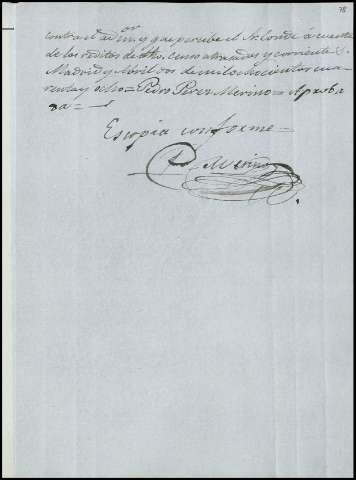 78
contra el adm.or y que percibe el Sr. Conde á cuenta
de los réditos de dho. censo atrasados y corriente
Madrid y Abril dos de mil ochocientos cua
renta y ocho = Pedro Perez Merino = Aproba
da =
Es copia conforme =
P. Merino